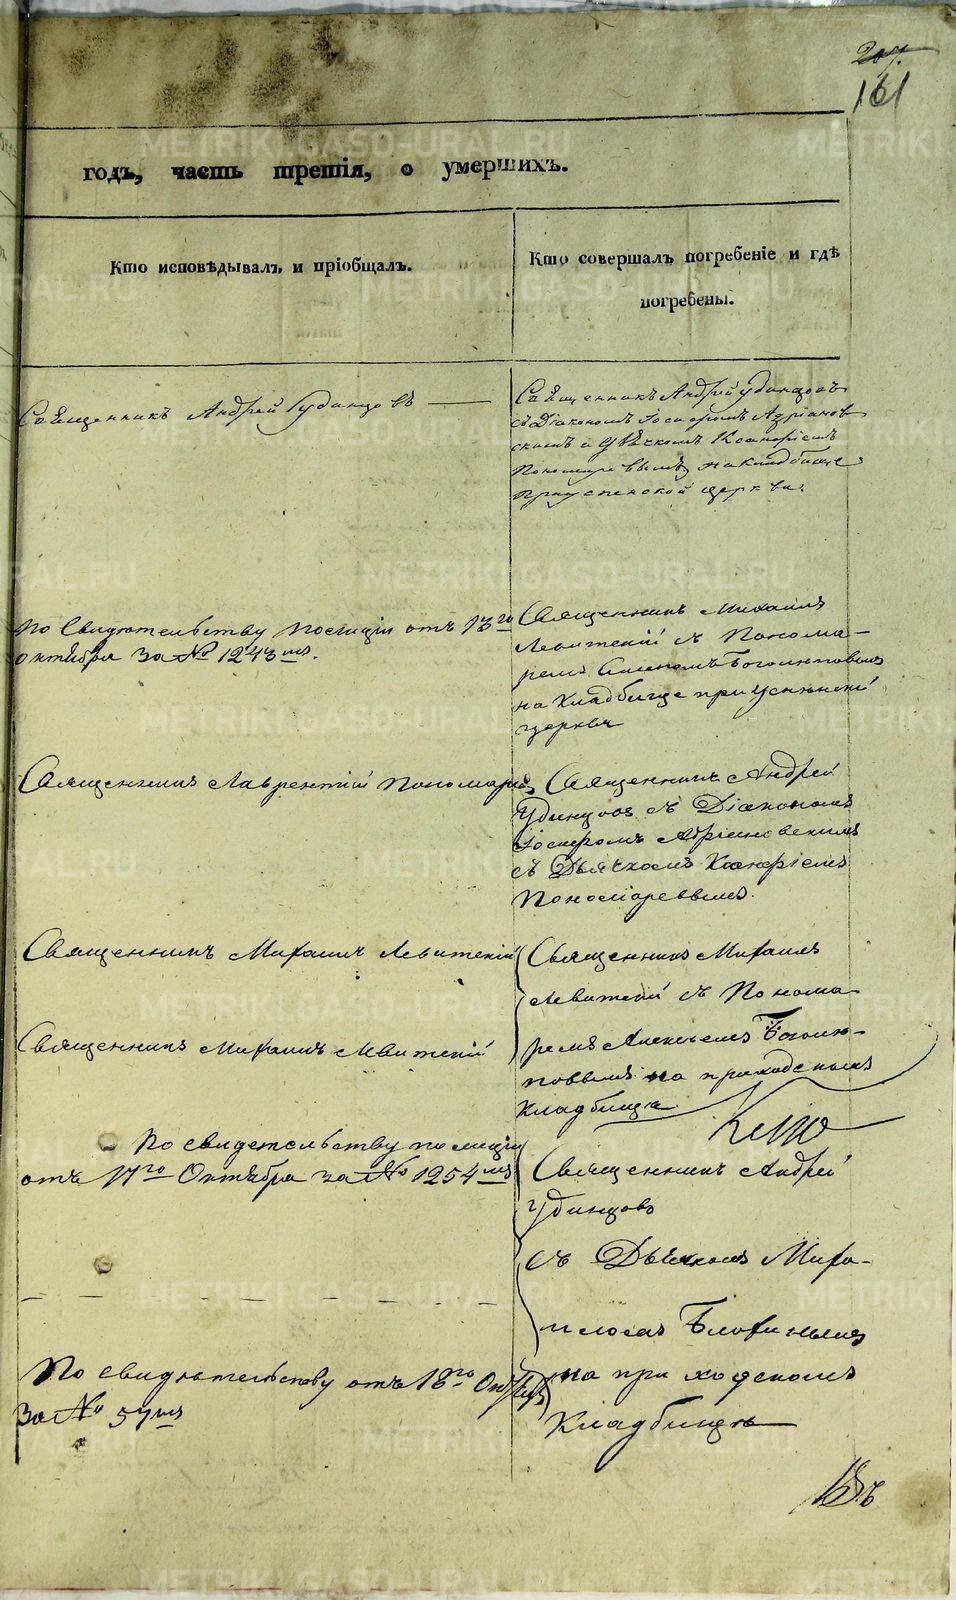 207.
161
годъ, часть третія, о умершихъ.
Кто исповѣдывалъ и пріобщалъ.
Кто совершалъ погребеніе и гдѣ
погребены.
Священникъ Андрей Удинцовъ
Священникъ Андрей Удинцовъ
съ Діакономъ Іосифомъ Адріанов
скимъ и
Пономаревымъ на кладбище
церкви.
По Свидѣтельству Полиціи отъ 13го
Октября За № 1243мъ.
Священникъ Михаилъ
Левитскій съ Понома-
ремъ Боголюповымъ
на Кладбище при Успенской
церквѣ
Священникъ Лаврентій Пономаревъ
Священникъ Андрей
Удинцовъ съ Діакономъ
Іосифомъ Адріановскимъ
съ Дьячкомъ
Пономаревымъ.
Священникъ Михаилъ Левитскій
Священникъ Михаилъ Левитскій
Священникъ Михаилъ
Левитскій съ Понома-
ремъ Алексѣемъ Боголю-
повымъ на приходскомъ
кладбищѣ
По свидетельству полиціи
отъ 17го Октября за № 1254мъ
Священникъ Андрей
Удинцовъ
съ Дьячкомъ Миха-
иломъ Блохинымъ
на приходскомъ
Кладбищѣ
По свидѣтельству отъ 18го
За № 57мъ
METRIKI.GASO-URAL.RU